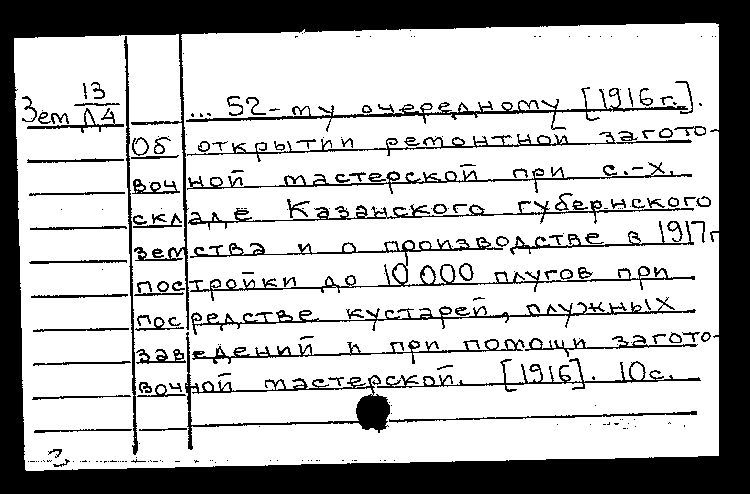 Зем 13/Д4 ... 52-му очередному [1916г.].
Об открытии ремонтной загото-
вочной мастерской при с.-х.
складе Казанского губернского
земства и о производстве в 1917г
постройки до 10000 плугов при
посредстве кустарей, плужных
заведений и при помощи загото-
вочной мастерской. [1916]. 10с.